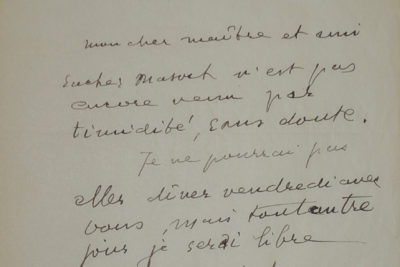 mon cher maître et ami
Sacher Masoch n'est pas
encore venu par
timidité, sans doute.
Je ne pourrai pas
aller dîner vendredi avec
vous, mais tout autre
jour je serai libre